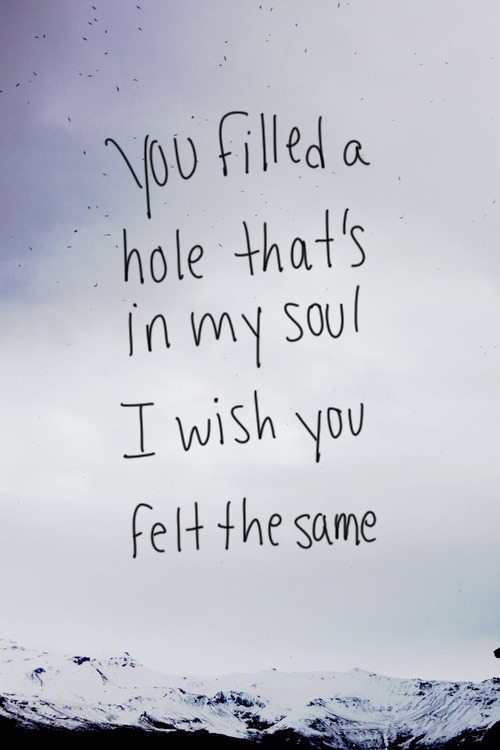 You filled a
hole that's
in my soul
I wish you
felt the same